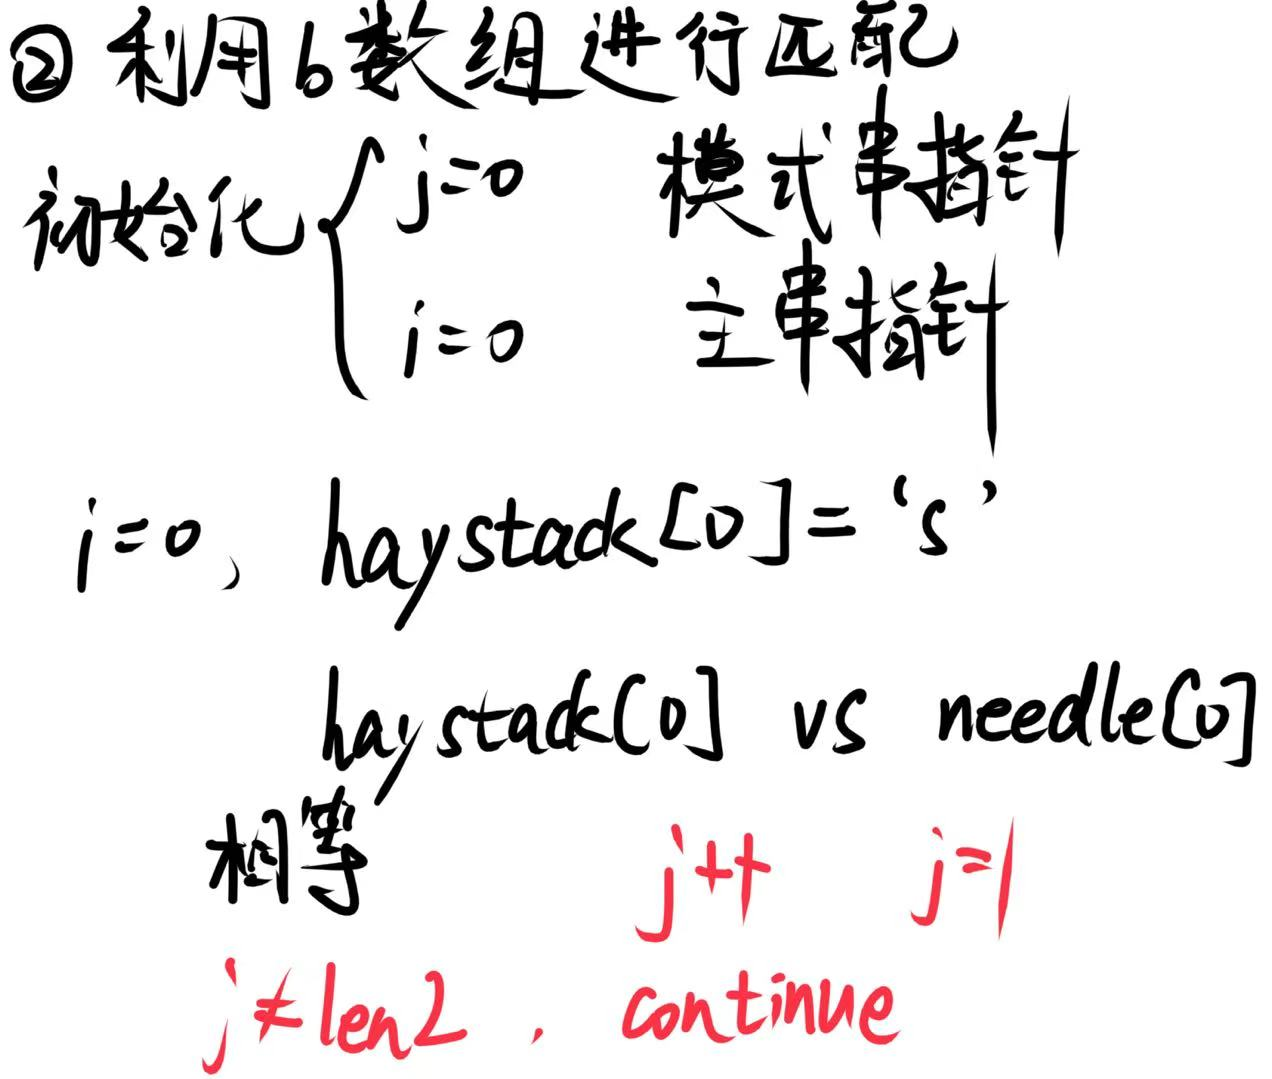 ② 利用b数组进行匹配
初始化 { j=0 模式串指针
i=0 主串指针
i=0, haystack[0]='s'
haystack[0] vs needle[0]
相等 j++ j=1
j≠len2, continue